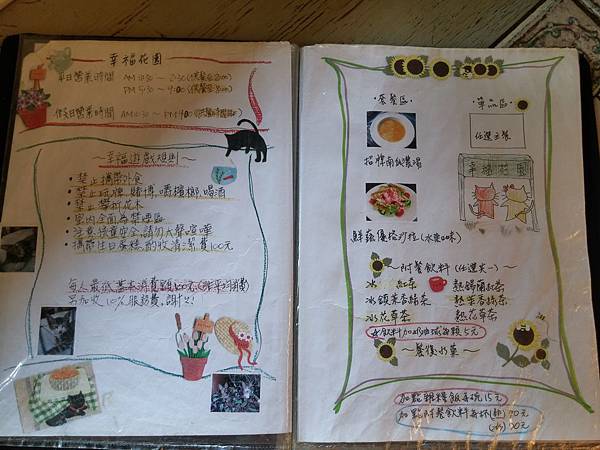 幸福花園
平日營業時間 AM 11:30 ~ 2:30
PM 5:30 ~ 9:00
假日營業時間 AM 11:30 ~ PM 9:00
~幸福遊戲規則~
• 禁止攜帶外食
• 禁止玩牌、賭博、嚼檳榔、喝酒
• 禁止攀折花木
• 室內全面為禁煙區
• 注意孩童安全,請勿大聲喧嘩
• 攜帶生日蛋糕,酌收清潔費100元
每人最低基本消費額100元
另加收10%服務費,謝謝!
•套餐區•
招牌南瓜濃湯
鮮蔬優格沙拉(水果口味)
•單品區•
任選主餐
幸福花園
~附餐飲料(任選其一)~
冰 紅茶
熱錫蘭紅茶
冰蘋果香桔茶
熱蘋果香桔茶
冰花草茶
熱花草茶
飲料加奶油球每顆5元
~餐後水果~
加點雜糧飯每碗15元
加點附餐飲料每杯(熱)90元
(冰)70元